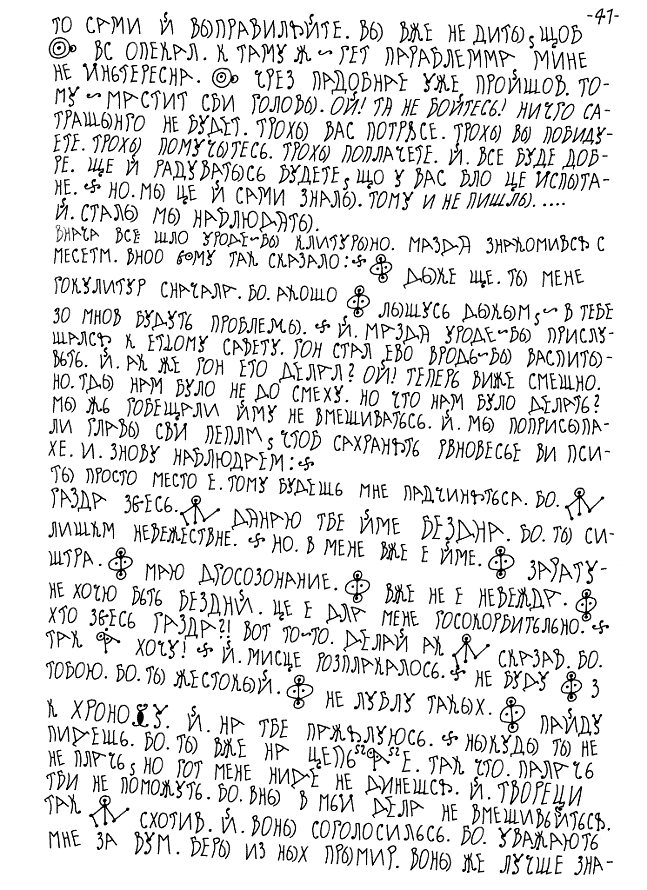 -41-
ТО САМИ Й ВЫПРАВИЛѢЙТЕ. ВЫ ВЖЕ НЕ ДИТЫ, ЩОБ
ВС ОПЕКАЛ. К ТАМУ Ж ~ ГЕТ ПАРАБЛЕММА МИНЕ
НЕ ИНЬТЕРЕСНА. ЧРЕЗ ПАДОБНАЕ УЖЕ ПРОЙШОВ. ТО-
МУ ~ МАСТИТ СВИ ГОЛОВЫ. ОЙ! ТА НЕ БОЙТЕСЬ! НИЧГО СА-
ТРАШЫНГО НЕ БУДЕТ. ТРОХЫ ВАС ПОТРѢСЕ. ТРОХЫ ВЫ ПОБИДУ-
ЕТЕ. ТРОХЫ ПОМУЧЫТЕСЬ. ТРОХЫ ПОПЛАЧЕТЕ. Й. ВСЕ БУДЕ ДОБ-
РЕ. ЩЕ Й РАДУВАТЫСЬ БУДЕТЕ, ЩО У ВАС БЛО ЦЕ ИСПЫТА-
НЕ. НО. МЫ ЦЕ Й САМИ ЗНАЛЫ. ТОМУ И НЕ ПИШЛЫ.....
Й. СТАЛЫ МЫ НАБЛЮДАТЫ.
ВНАЧА ВСЕ ШЛО УРОДЕ~БЫ КЛИТУРЫНО. МАЗДА ЗНАКОМИВСѢ С
МЕСЕТМ. ВНОО ЁМУ ТАК СКАЗАЛО: ДЫЖЕ ЩЕ. ТЫ МЕНЕ
ГОКУЛИТУР СНАЧАЛА. БО. АКОШО ЛЫШУСЬ ДЫКЫМ, ~ В ТЕБЕ
ЗО МНОВ БУДУТЬ ПРОБЛЕМЫ. Й. МАЗДА УРОДЕ~БЫ ПРИСЛУ-
ШАЛСѢ К ЕТЦОМУ САВЕТУ. ГОН СТАЛ ЕВО ВРОДЬ~БЫ ВАСПИТЫ-
ВЬТЬ. Й. АК ЖЕ ГОН ЕТО ДЕЛАЛ? ОЙ! ТЕПЕРЬ ВИЖЕ СМЕШНО.
НО. ТДЫ НАМ БУЛО НЕ ДО СМЕХУ. НО ЧТО НАМ БУЛО ДЕЛАТЬ?
МЫ ЖЬ ГОБЕЩАЛИ ЙМУ НЕ ВМЕШИВАТЬСЬ. Й. МЫ ПОПРИСЫПА-
ЛИ ГЛАВЫ СВИ ПЕПЛМ, ЧТОБ САХРАНѢТЬ РВНОВЕСЬЕ ВИ ПСИ-
ХЕ. И. ЗНОВУ НАБЛЮДАЕМ:
ТЫ ПРОСТО МЕСТО Е. ТОМУ БУДЕШЬ МНЕ ПАДЧИНѢТЬСА. БО.
ГАЗДА ЗѢЕСЬ. ДАНАЮ ТБЕ ЙМЕ БЕЗДНА. БО. ТЫ СИ-
ЛИШКМ НЕВЕЖЕСТВНЕ. НО. В МЕНЕ ВЖЕ Е ЙМЕ. ЗАРАТУ-
ШТРА. МАЮ ДРОСОЗОНАНИЕ. ВЖЕ НЕ Е НЕВЕЖДА.
НЕ ХОЧЮ БЫТЬ БЕЗДНЙ. ЦЕ Е ДЛА МЕНЕ ГОСОКОРБИТЬЛЬНО.
ХТО ЗѢЕСЬ ГАЗДА?! ВОТ ТО~ТО. ДЕЛАЙ АК СКАЗАВ. БО.
ТАК ХОЧУ! Й. МИСЦЕ РОЗПЛАКАЛОСЬ. НЕ БУДУ З
ТОБОЮ. БО. ТЫ ЖЕСТОКЫЙ. НЕ ЛУБЛУ ТАКЫХ. ПАЙДУ
К ХРОНО У. Й. НА ТБЕ ПАЖѢЛУЮСЬ. НЫКУДЫ ТЫ НЕ
ПИДЕШЬ. БО. ТЫ ВЖЕ НА ЦЕПЬ Е. ТАК ЧТО. ПАЛАЧЬ
НЕ ПЛАЧЬ, НО ГОТ МЕНЕ НИДЕ НЕ ДИНЕШСѢ. Й. ТВОРЕЦИ
ТВИ НЕ ПОМОЖУТЬ. БО. ВНЫ В МЬИ ДЕЛА НЕ ВМЕШИВЬЙТЬСѢ.
ТАК СХОТИВ. Й. ВОНЫ СОГОЛОСИЛЬСЬ. БО. УВАЖАЮТЬ
МНЕ ЗА ВУМ. БЕРЫ ИЗ НЫХ ПРЫМИР. ВОНЫ ЖЕ ЛУЧШЕ ЗНА-